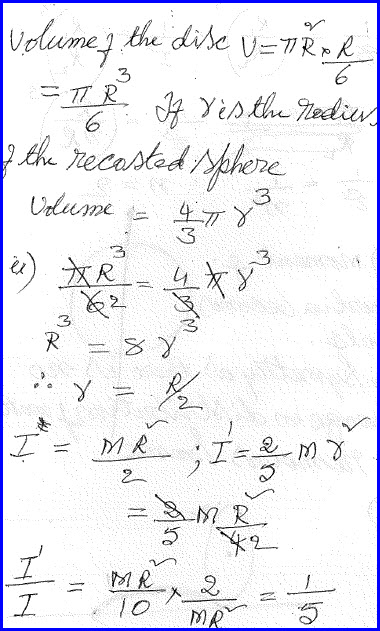 Volume of the disc V = πR² × R/6
= πR³/6 If r is the radius
of the recasted sphere
Volume = 4/3 π r³
ie) πR³/62 = 4/3 π r³
R³ = 8 r³
∴ r = R/2
I* = MR²/2 ; I' = 2/5 M r²
= 2/5 M R²/42
I'/I = MR²/10 × 2/MR² = 1/5